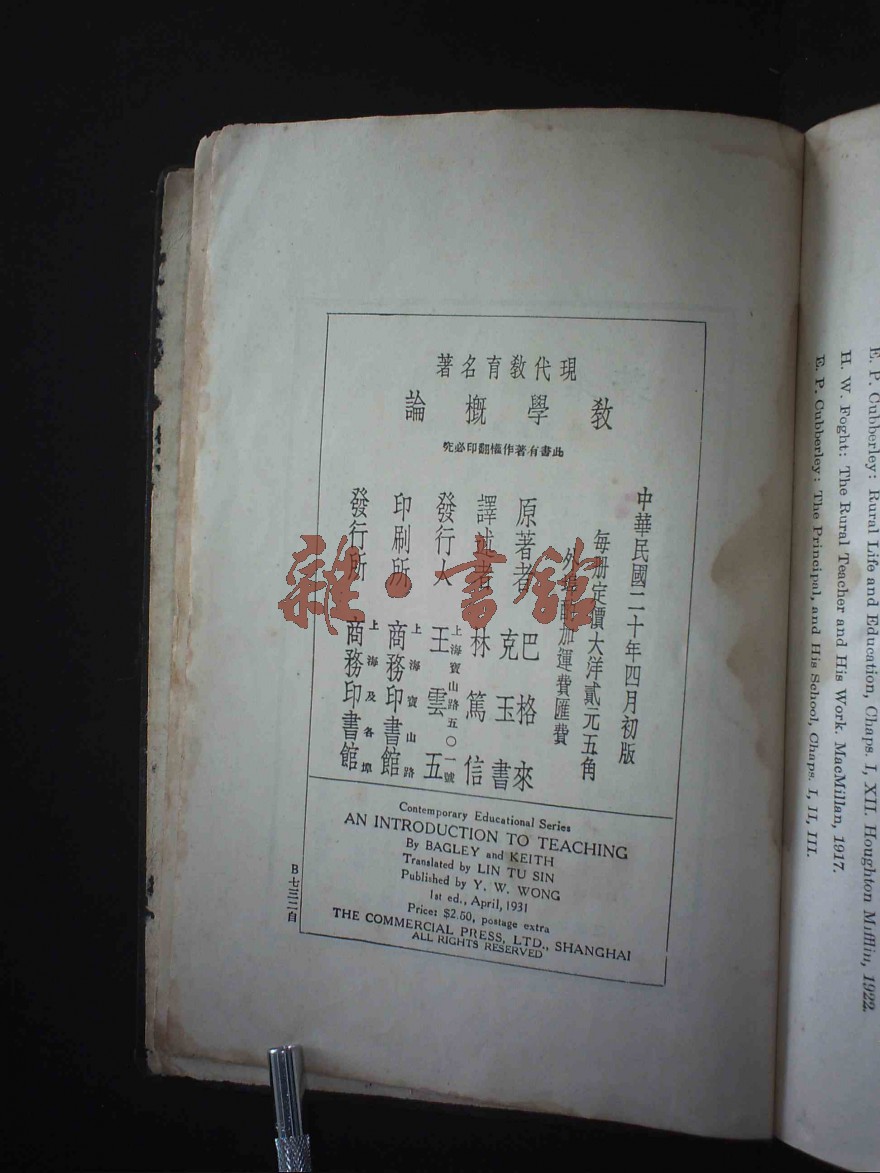 現代敎育名著
敎學槪論
此書有著作權翻印必究
中華民國二十年四月初版
每册定價大洋貳元五角
外埠酌加運費匯費
原著者 巴格來
克玉書
譯述者 林篤信
發行人 上海寶山路五〇一號 王雲五
印刷所 上海寶山路 商務印書館
發行所 上海及各埠 商務印書館
Contemporary Educational Series
AN INTRODUCTION TO TEACHING
By BAGLEY and KEITH
Translated by LIN TU SIN
Published by Y. W. WONG
1st ed., April, 1931
Price: $2.50, postage extra
THE COMMERCIAL PRESS, LTD., SHANGHAI
ALL RIGHTS RESERVED
B七三二自
雜·書館
E. P. Cubberley: Rural Life and Education, Chaps. I, XII. Houghton Mifflin, 1922.
H. W. Foght: The Rural Teacher and His Work. MacMillan, 1917.
E. P. Cubberley: The Principal, and His School, Chaps. I, II, III.